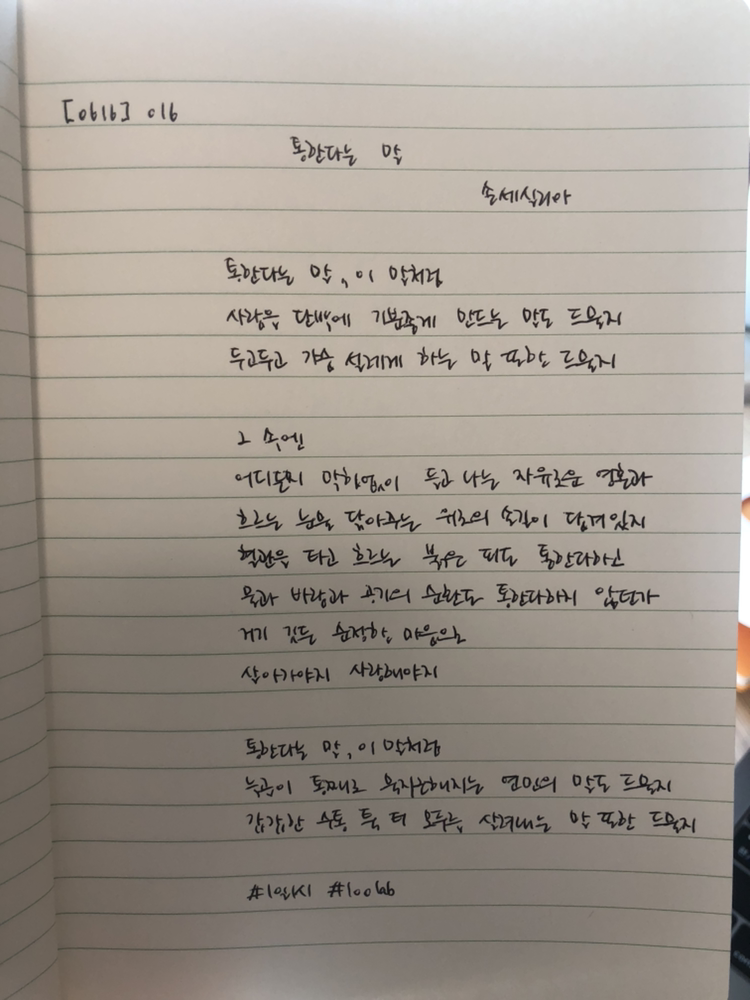 [0616] 016
통한다는 말
손세실리아
통한다는 말, 이 말처럼
사람을 단박에 기분좋게 만드는 말도 드물지
두고두고 가슴 설레게 하는 말 또한 드물지
그 속엔
어디든지 막힘없이 들고 나는 자유로운 영혼과
흐르는 눈물 닦아주는 위로의 손길이 담겨있지
혈관을 타고 흐르는 붉은 피도 통한다하고
물과 바람과 공기의 순환도 통한다하지 않던가
거기 깃든 순정한 마음으로
살아가야지 사랑해야지
통한다는 말, 이 말처럼
늑골이 통째로 묵지근해지는 연민의 말도 드물지
갑갑한 숨통 툭 터 모두를 살려내는 말 또한 드물지
#1일1시 #100lab